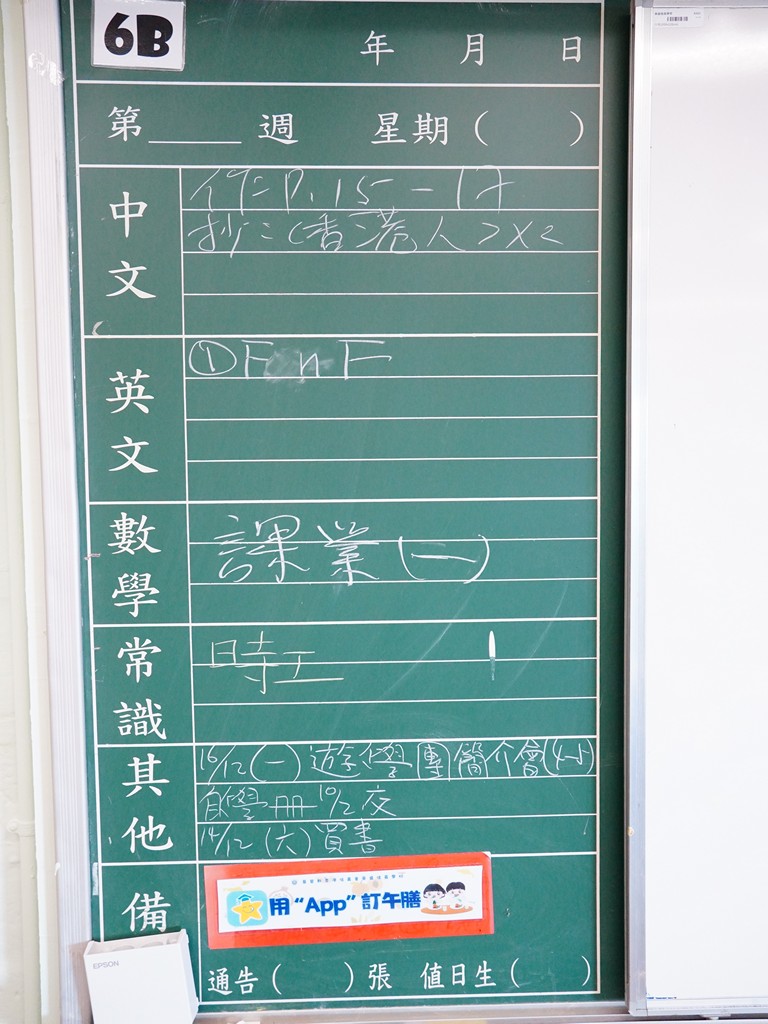 6B
年 月 日
第____週 星期( )
中文
作二 P.15-17
抄二〈香港人〉X2
英文
① F n F
數學
課業(一)
常識
時工
其他
16/12(一) 遊學團簡介會(4-5)
自學冊10/12交
14/12 (六)買書
備
用“App”訂午膳
EPSON
通告( )張 值日生( )